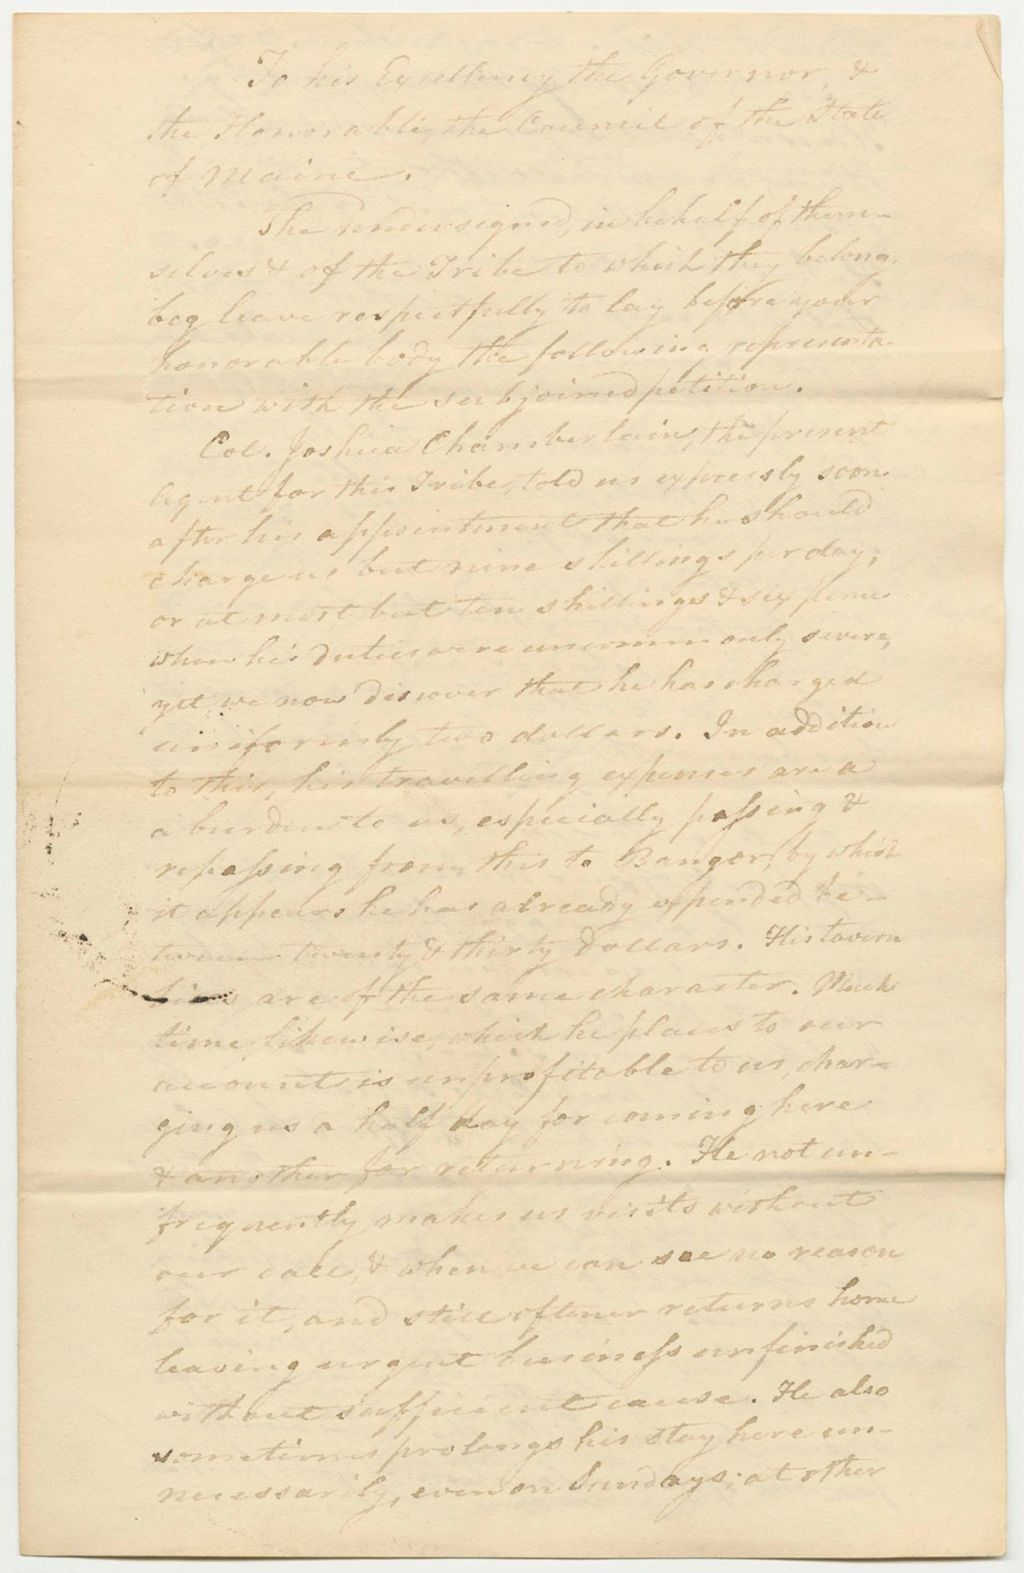 To his Excellency the Governor, &
the Honorable, the Council of the State
of Maine.
The undersigned, in behalf of them-
selves & of the Tribe to which they belong,
beg leave respectfully to lay before your
honorable body the following representa-
tion with the subjoined petition.
Col. Joshua Chamberlain, the present
agent for this Tribe, told us expressly soon
after his appointment that he should
charge us but nine shillings per day,
or at most but ten shillings & six pence
when his duties were uncommonly severe,
yet we now discover that he has charged
uniformly two dollars. In addition
to this, his travelling expenses are a
a burden to us, especially passing &
repassing from this to Bangor, by which
it appears he has already expended be-
tween twenty & thirty Dollars. His tavern
bills are of the same character. Much
time, likewise, which he places to our
account is unprofitable to us, char-
ging us a half day for coming here
& another for returning. He not un-
frequently makes us visits without
our call, & when we can see no reason
for it, and still oftener returns home
leaving urgent business unfinished
without sufficient cause. He also
sometimes prolongs his stay here un-
necessarily, even on Sundays; at other